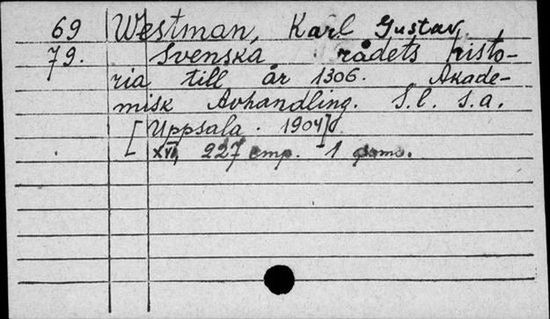 69 Westman, Karl Gustav,
79. Svenska rådets histo-
ria till år 1306. Akade-
misk Avhandling. S.l. s.a.
[Uppsala. 1904]
XVI, 227 cmp. 1